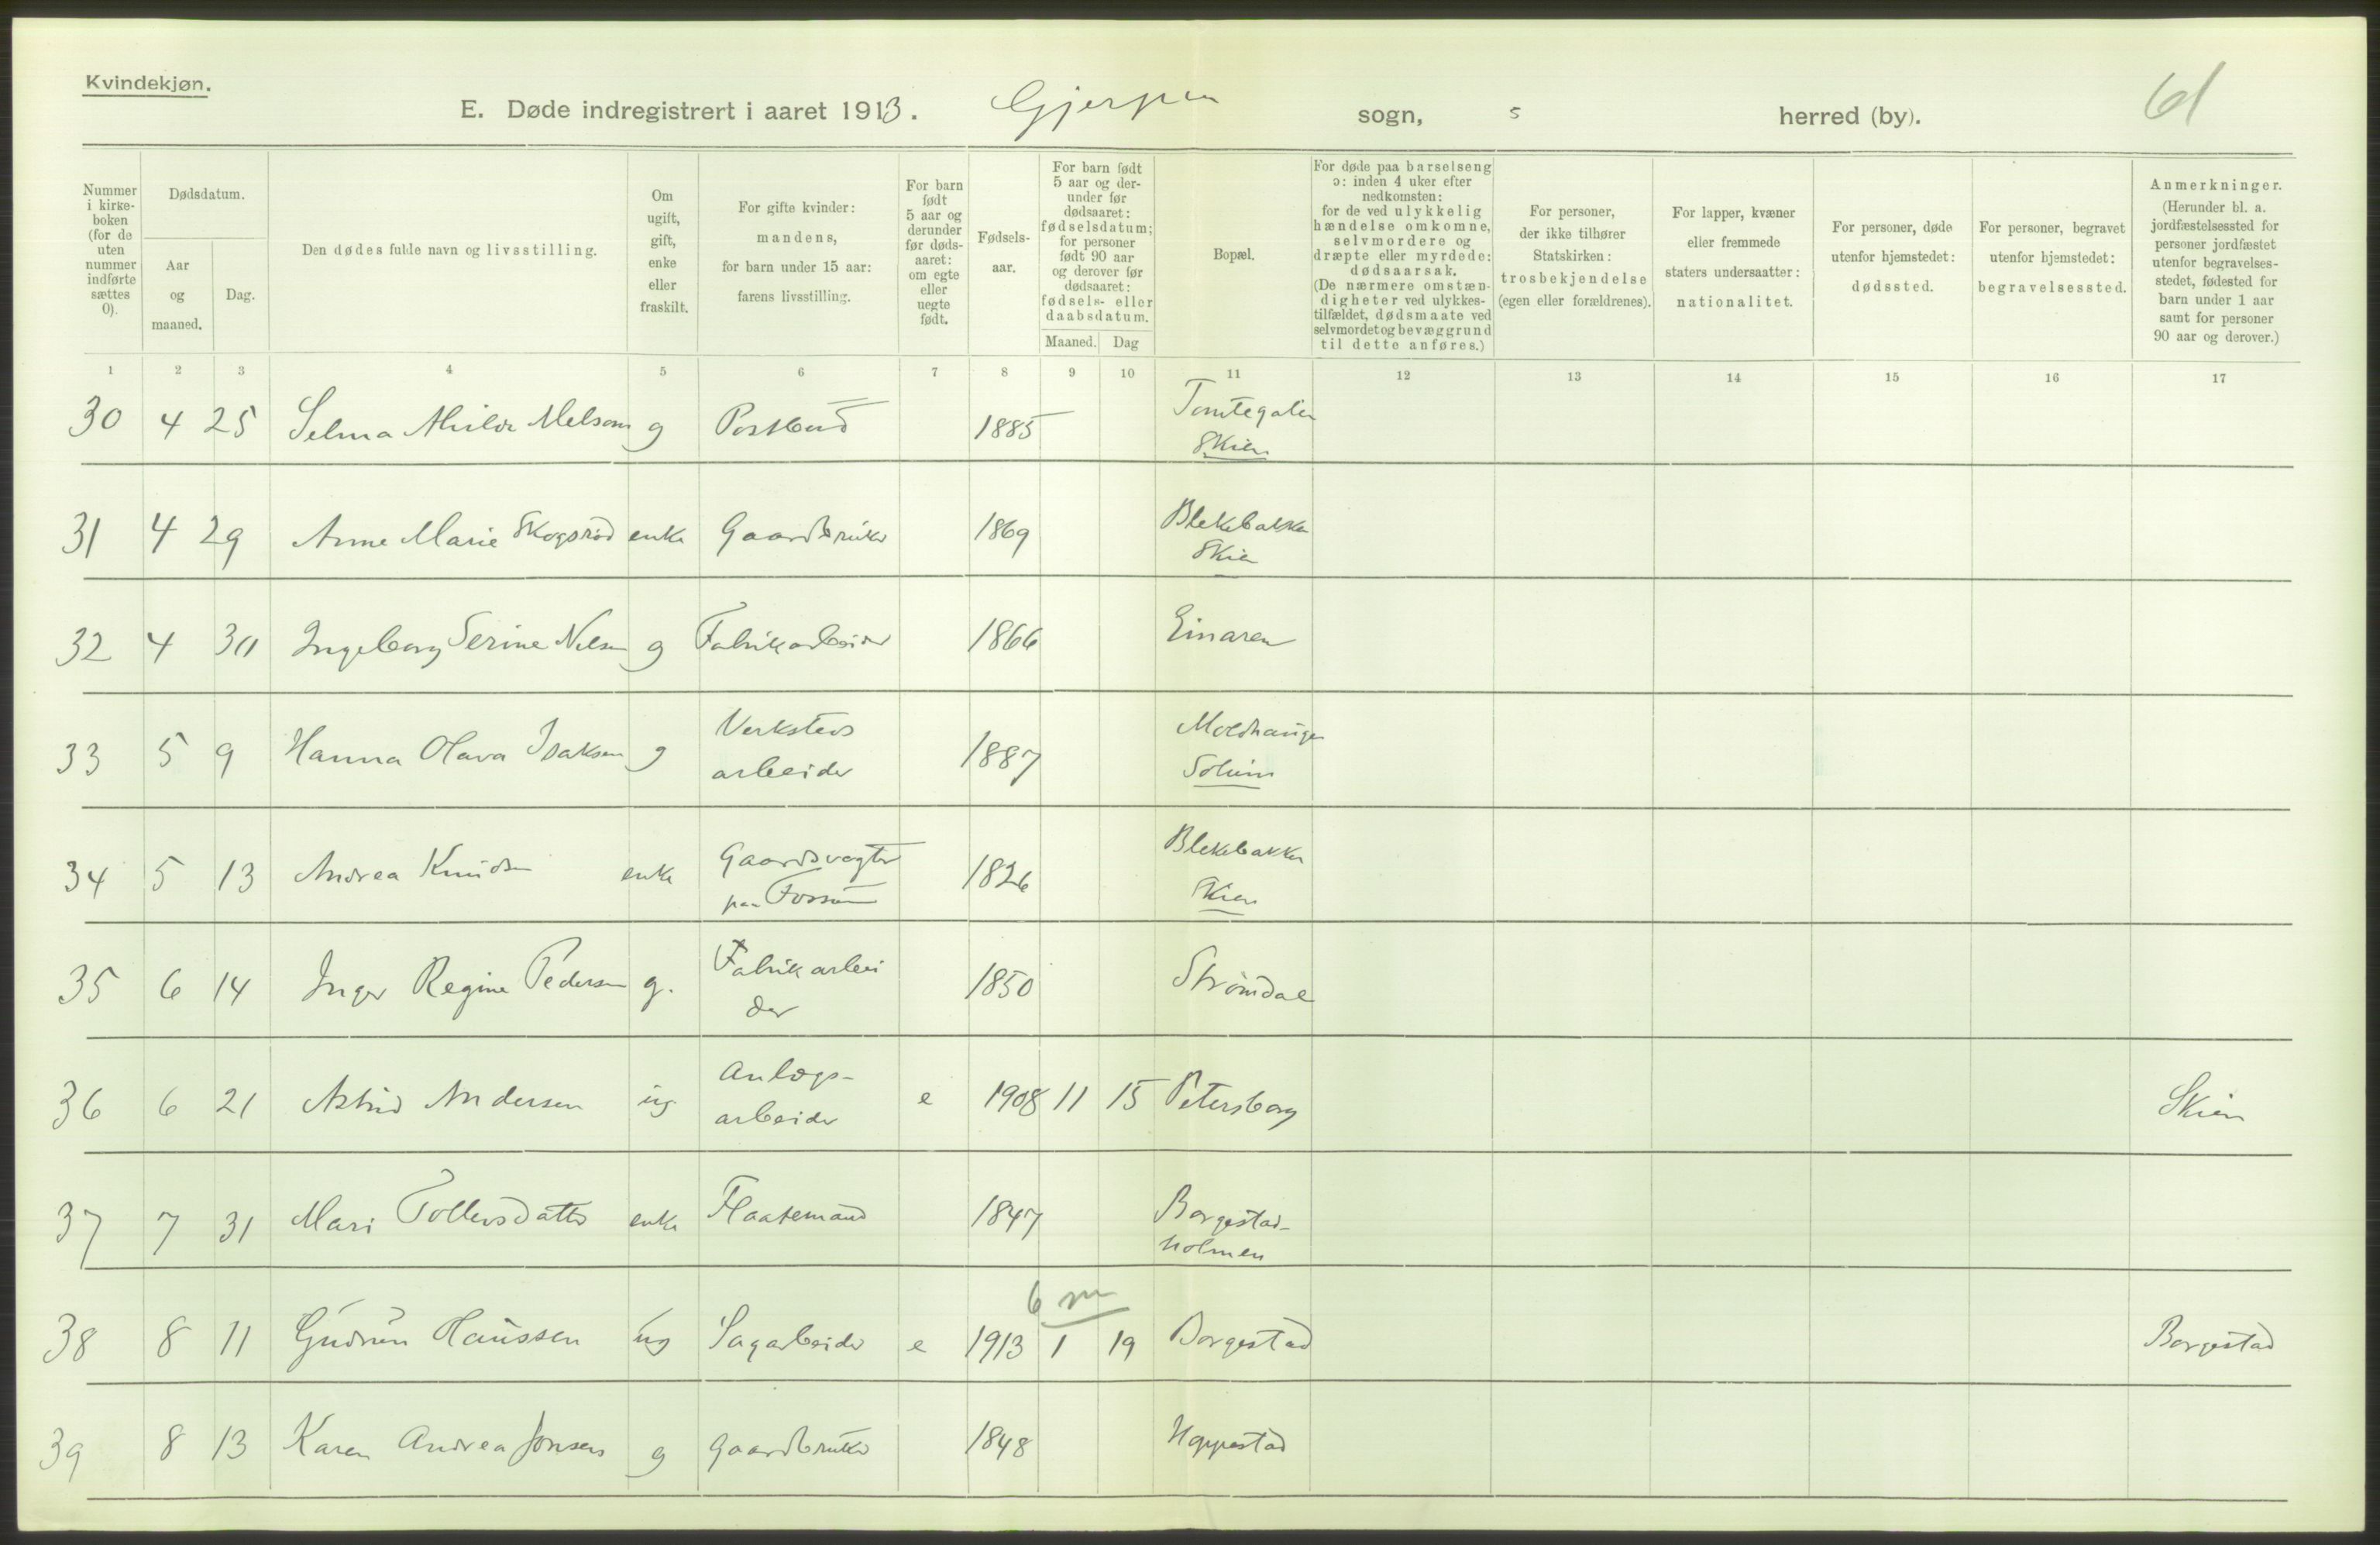 Kvindekjøn.
E. Døde indregistrert i aaret 1913. Gjerpen sogn, s herred (by). 61
Nummer i kirkeboken (for de uten nummer indførte sættes 0).
Dødsdatum.
Aar og maaned.
Dag.
Den dødes fulde navn og livsstilling.
Om ugift, gift, enke eller fraskilt.
For gifte kvinder: mandens, for barn under 15 aar: farens livsstilling.
For barn født 5 aar og derunder før dødsaaret: om egte eller uegte født.
Fødselsaar.
For barn født 5 aar og derunder før dødsaaret: fødselsdatum; for personer født 90 aar og derover før dødsaaret: fødsels- eller daabsdatum.
Maaned. Dag
Bopæl.
For døde paa barselseng ɔ: inden 4 uker efter nedkomsten: for de ved ulykkelig hændelse omkomne, selvmordere og dræpte eller myrdede: dødsaarsak. (De nærmere omstændigheter ved ulykkestilfældet, dødsmaate ved selvmordet og bevæggrund til dette anføres.)
For personer, der ikke tilhører Statskirken: trosbekjendelse (egen eller forældrenes).
For lapper, kvæner eller fremmede staters undersaatter: nationalitet.
For personer, døde utenfor hjemstedet: dødssted.
For personer, begravet utenfor hjemstedet: begravelsessted.
Anmerkninger. (Herunder bl. a. jordfæstelsessted for personer jordfæstet utenfor begravelsesstedet, fødested for barn under 1 aar samt for personer 90 aar og derover.)
1 2 3 4 5 6 7 8 9 10 11 12 13 14 15 16 17
30 4 25 Selma Melsom g Postbud 1885 Skien
31 4 29 Anne Marie Skogsrød enke Gaardbruker 1869 Blekebakken
Skien
32 4 30 Ingeborg Serine Nilsen g Fabrikarbeider 1866 Einaren
33 5 9 Hanna Olava Isaksen g Verksteds
arbeider 1887 Moldhaugen
Solum
34 5 13 Andrea Knudsen enke Gaardsvogter
paa Fossum 1826 Blekebakken
Skien
35 6 14 Inger Regine Pedersen g. Fabrikarbei
der 1850 Strømdal
36 6 21 Astrid Andersen ug Anlægs-
arbeider e 1908 11 15 Petersborg Skien
37 7 31 Mari Tollevsdatter enke Flaatemand 1847 Borgestad-
holmen
6 m
38 8 11 Gudrun Hanssen ug Sagarbeider e 1913 1 19 Borgestad Borgestad
39 8 13 Karen Andrea Jonsen g Gaardbruker 1848 Hoppestad